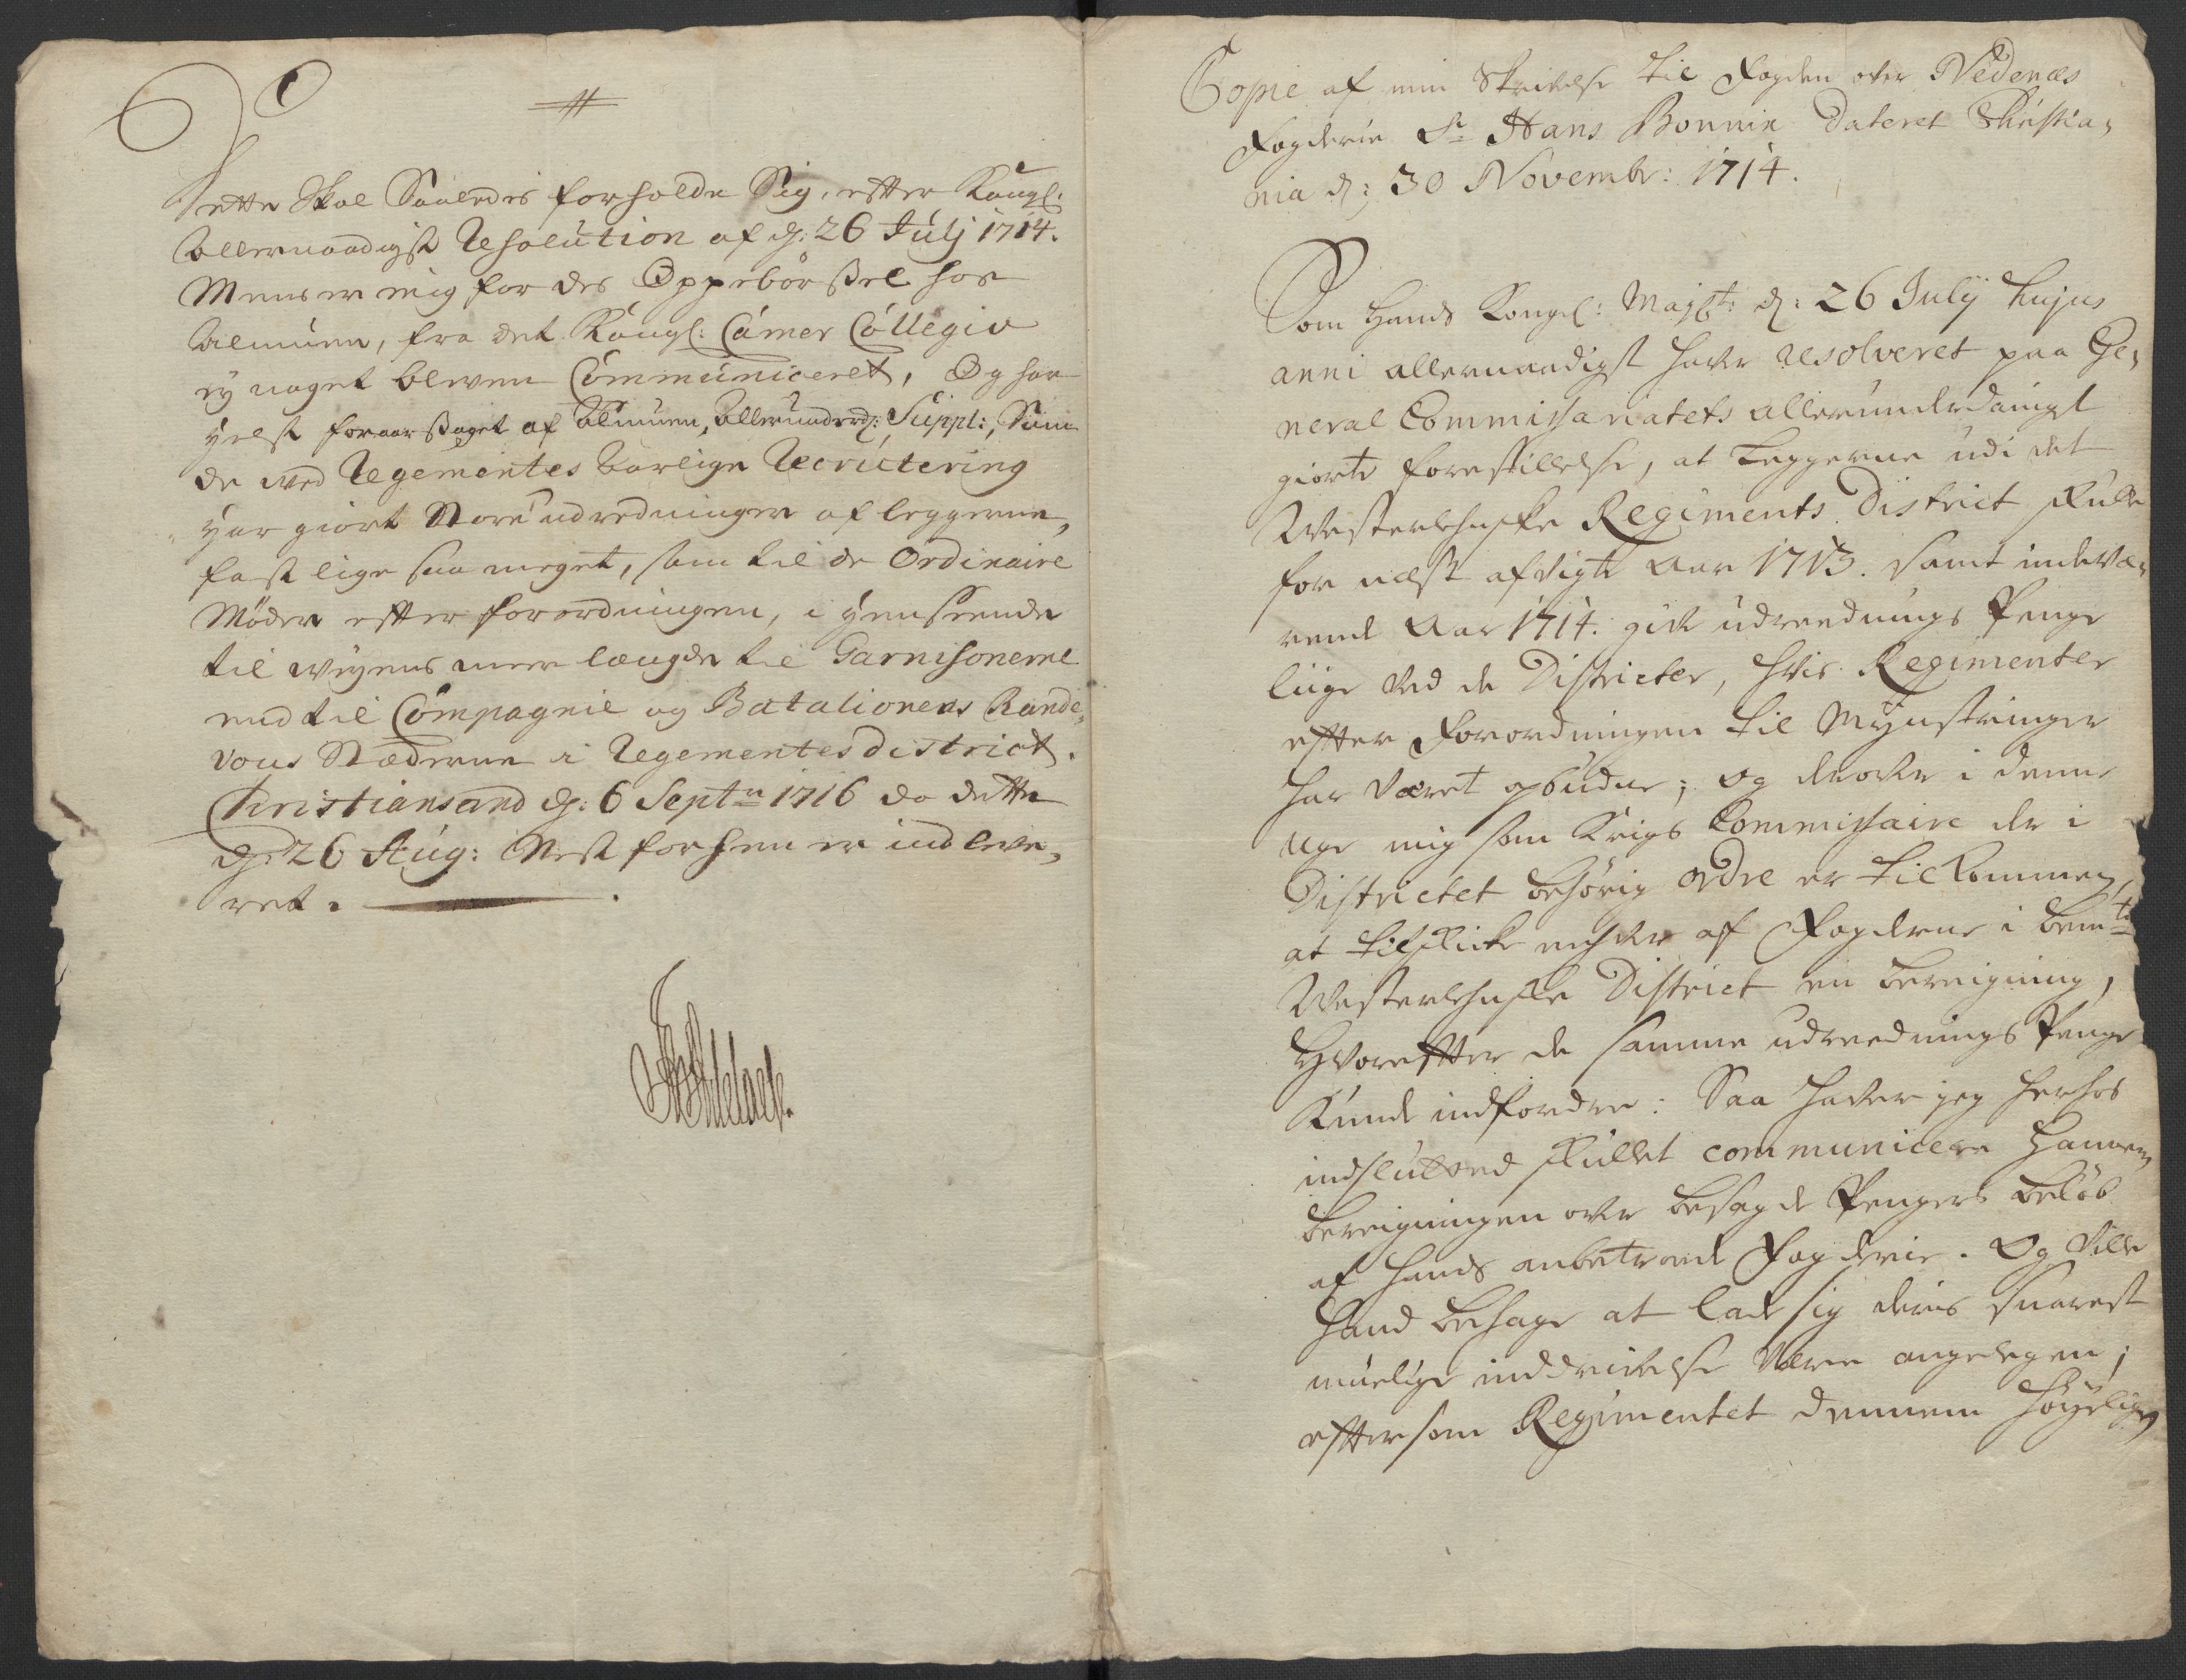 Dette Skal Saaledes forholde Sig, efter Kongl:
allernaadigst Resolution af d: 26 Julj 1714.
Mens er mig for des Oppebörßel hos
almuen, fra det Kongl: Camer Collegio
ey noget bleven Communiceret, Og har
helst foraarßaget af Almuen, allerunderd: Suppl:, Som
de ved Regementes aarlige Recrutering
har giort Store udredninger af leggerne,
fast lige saa meget, som til de Ordinaire
Møder efter forordningen, i henseende
til veyens meere længde til Garnisonerne
end til Compagnie og Batalionens Rande-
vous Stæderne i Regementes district.
Christiansand d: 6 Septr 1716 da dette
d: 26 Aug: Nest forhen er indleve-
ret.
Copie af min Skrivelse til Fogden over Nedenæs
Fogderie Sr Hans Bonnix Dateret Christia-
nia d: 30 Novembr: 1714.
Som Hands Kongel: Mayst: d: 26 Julij hujus
anni allernaadigst haver resolveret paa Ge-
neral Commissariatets allerunderdanigst
giorte forestillelse, at Leggerne udi det
Westerlehnske Regiments District skulle
for næst afvigte Aar 1713. samt indevæ-
rende Aar 1714. give udreednings Penge
liige ved de Districter, hvis Regimenter
efter Forordningen til Mynstringer
har været opbudne; og derover i denne
uge mig som Krigs Commissaire der i
Districtet behørig ordre er tilkommen,
at tilskicke enhver af Fogderne i bemte
Westerlehnske District en beregning,
hvorefter de samme udreednings Penge
Kunde indfordre: Saa haver jeg herhos
indsluttend skullet communicere hannem
beregningen over besagde Pengers beløb
af hands anbetroede Fogderie. Og ville
hand behage at lade sig deris snarest
muelige inddrivelse være angelegen;
eftersom Regimentet dennem høyligen